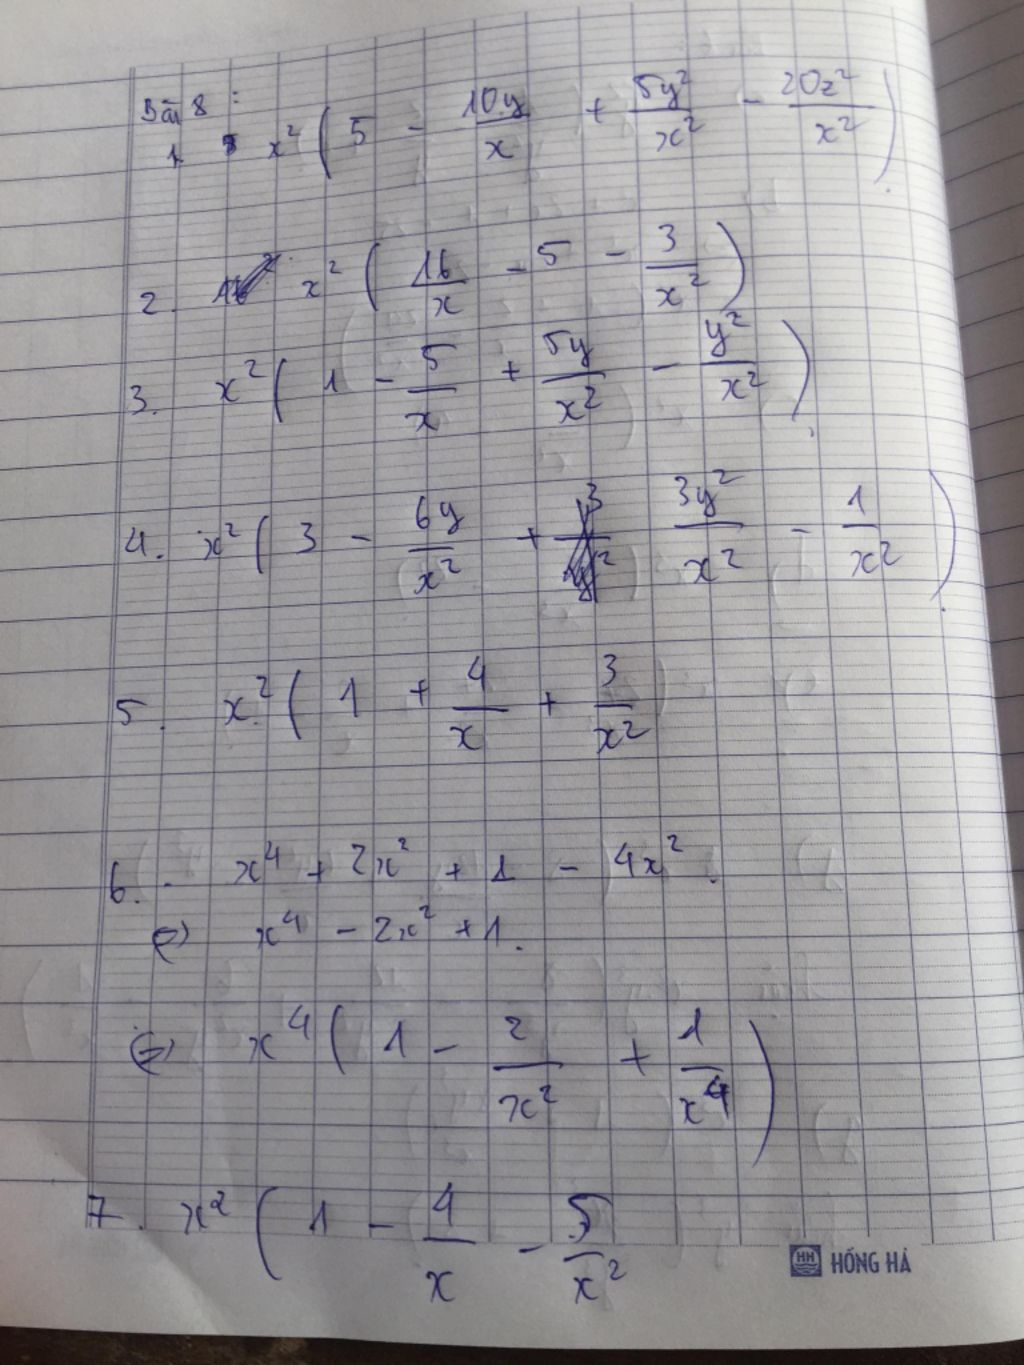 Bài 8 :
1 x² ( 5 - 10y/x + 5y²/x² - 20z²/x² ) .
2. x² ( 16/x - 5 - 3/x² )
3. x² ( 1 - 5/x + 5y/x² - y²/x² ) .
4. x² ( 3 - 6y/x² + 3y²/x² - 1/x² ) .
5. x² ( 1 + 4/x + 3/x²
6. x⁴ + 2x² + 1 - 4x² .
(=) x⁴ - 2x² + 1.
(=) x⁴ ( 1 - 2/x² + 1/x⁴ )
7. x² ( 1 - 4/x - 5/x²
HH HỒNG HÀ